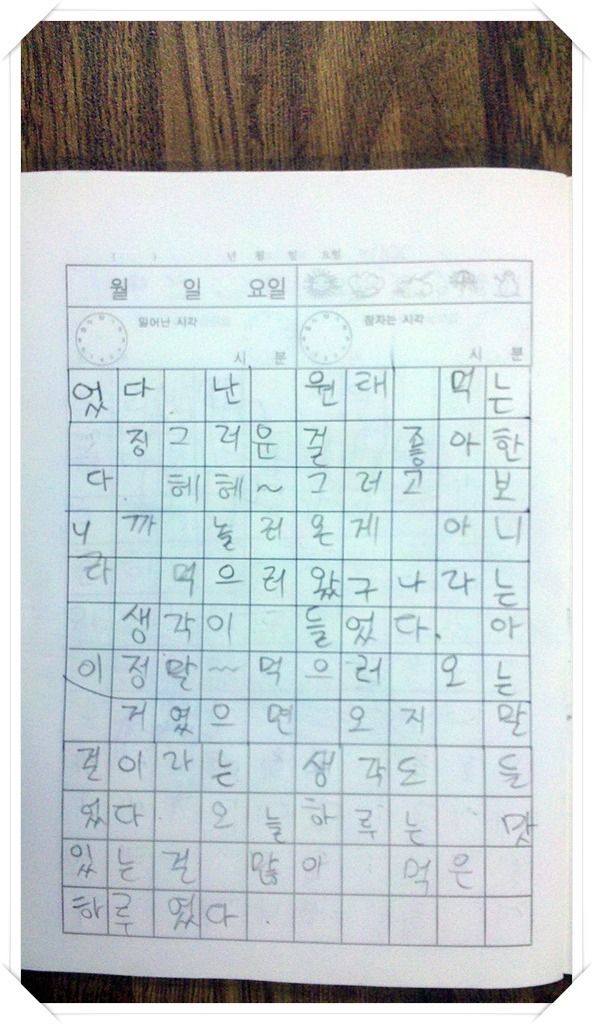 월 일 요일
일어난 시각 시 분 잠자는 시각 시 분
었다. 난 원래 먹는
징그러운 걸 좋아한
다. 헤헤~ 그러고 보
니까 놀러온게 아니
라 먹으러 왔구나라는
생각이 들었다. 아
이정말~ 먹으러 오는
거였으면 오지 말
걸이라는 생각도 들
었다 오늘하루는 맛
있는걸 많아 먹은
하루였다.